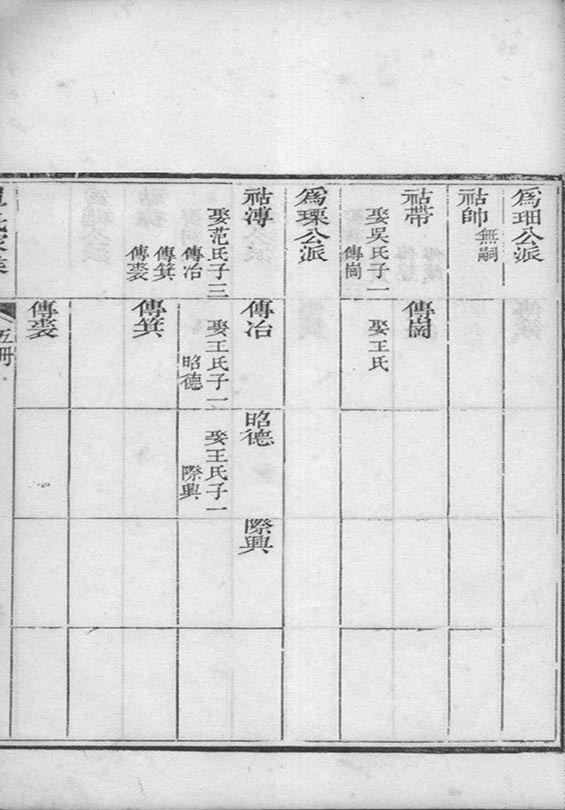 為㺭公派
祜帥無嗣
祜帶
娶吳氏子一
傳崗
傳崗
娶王氏
為瑮公派
祜溥
娶范氏子三
傳冶
傳箕
傳裘
傳冶
娶王氏子一
昭德
昭德
娶王氏子一
際興
際興
傳箕
傳裘
五冊